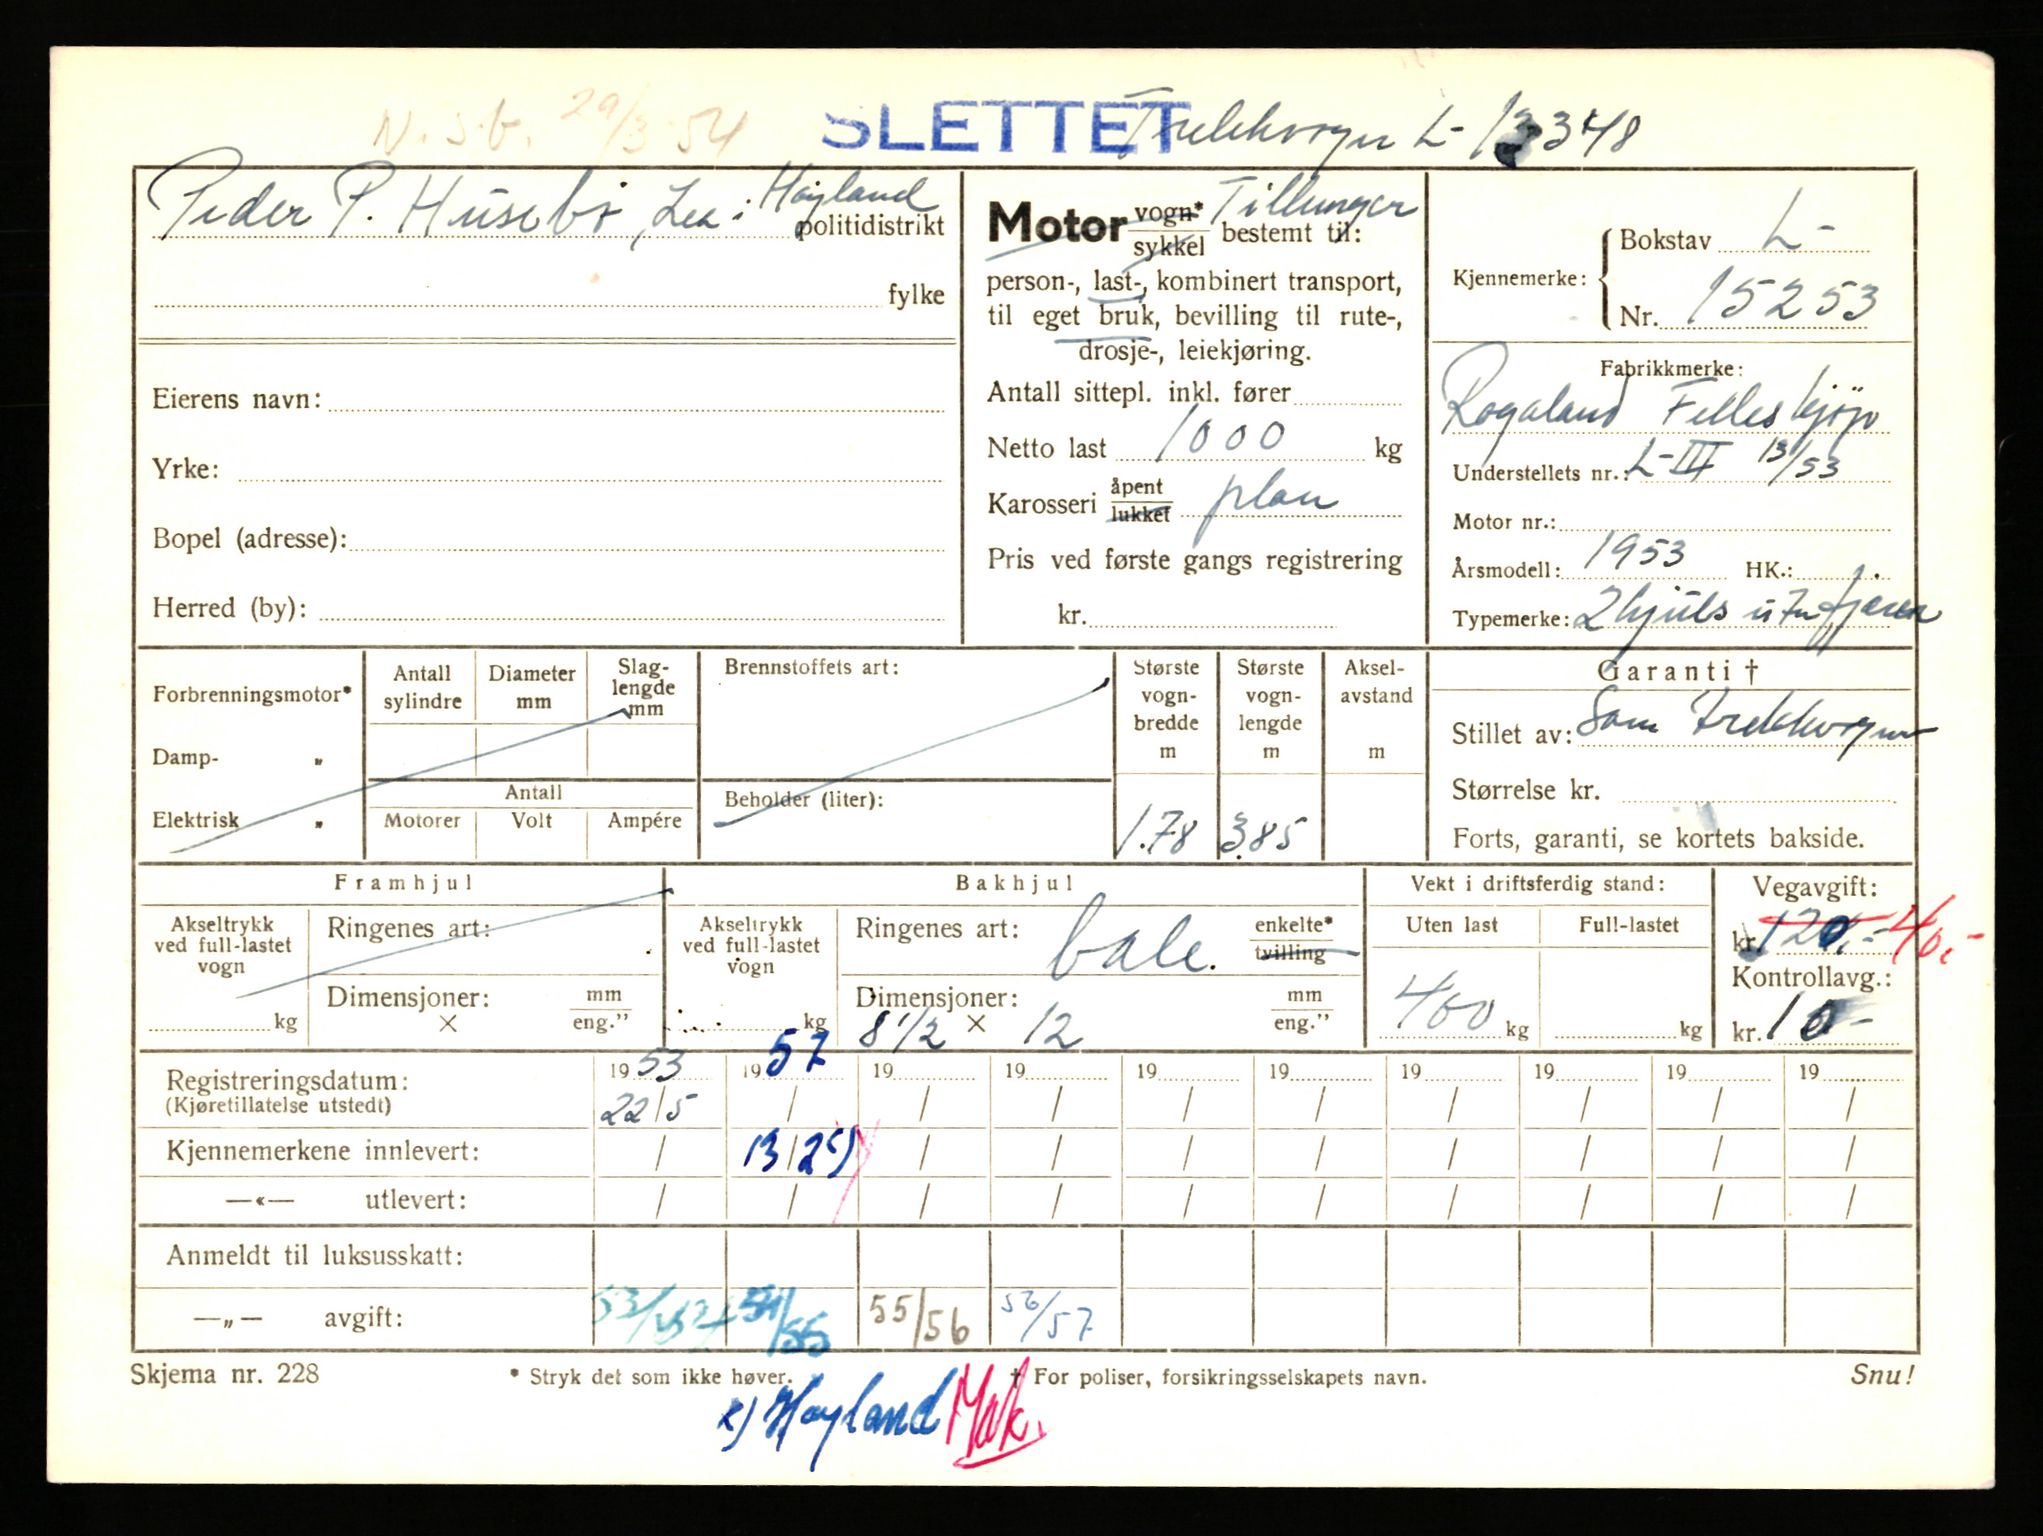 N.s.b. 29/3-54
SLETTET
Trekkvogn L-13348
Peder P. Husebø, Lea i Høyland
politidistrikt
fylke
Eierens navn:
Yrke:
Bopel (adresse):
Herred (by):
Motor vogn* sykkel Tilhenger bestemt til:
person-, last-, kombinert transport,
til eget bruk, bevilling til rute-,
drosje-, leiekjøring.
Antall sittepl. inkl. fører
Netto last 1000 kg
Karosseri åpent lukket plan
Pris ved første gangs registrering
kr.
Kjennemerke: Bokstav L-
Nr. 15253
Fabrikkmerke:
Rogaland Felleskjøp
Understellets nr.: L-III 13/53
Motor nr.:
Årsmodell: 1953 HK.:
Typemerke: 2hjuls uten fjærer
Forbrenningsmotor*
Damp- „
Elektrisk „
Antall sylindre
Diameter mm
Slag-lengde mm
Antall
Motorer Volt Ampére
Brennstoffets art:
Beholder (liter):
Største vogn-bredde m
1.78
Største vogn-lengde m
3.85
Aksel-avstand m
Garanti †
Stillet av: Som trekkvogn
Størrelse kr.
Forts, garanti, se kortets bakside.
Framhjul
Akseltrykk ved full-lastet vogn
kg
Ringenes art:
Dimensjoner: × mm eng."
Bakhjul
Akseltrykk ved full-lastet vogn
kg
Ringenes art: enkelte* tvilling
Dimensjoner: mm eng."
8 1/2 × 12
Vekt i driftsferdig stand:
Uten last Full-lastet
400 kg kg
Vegavgift:
kr. 120,- 40,-
Kontrollavg.:
kr. 10-
Registreringsdatum: 1953 1957 19 19 19 19 19 19 19 19
(Kjøretillatelse utstedt) 22/5 / / / / / / / / /
Kjennemerkene innlevert: / 13/2 / / / / / / / /
—«— utlevert: / / / / / / / / / /
Anmeldt til luksusskatt:
—„— avgift: 53/54 54/55 55/56 56/57
Skjema nr. 228
* Stryk det som ikke høver.
† For poliser, forsikringsselskapets navn.
Snu!
x) Høyland Mak.